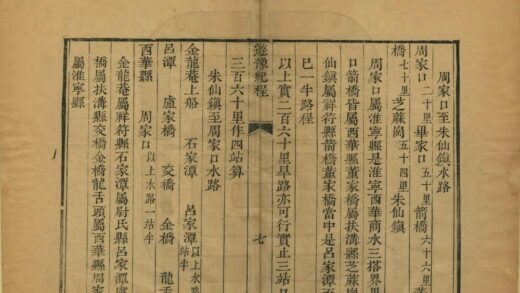 周家口至朱仙鎮水路
周家口二十里畢家口五十里箭橋六十六里董
橋七十里芝蔴崗五十四里朱仙鎮
周家口屬淮寧縣是淮寧西華商水三搭界畢
口箭橋皆屬西華縣董家橋屬扶溝縣芝蔴崗
仙鎮屬祥符縣箭橋董家橋當中是呂家潭
巳一半路程
以上實二百六十里旱路亦可行實止三站
遊豫紀程 七
三百六十里作四站算
朱仙鎮至周家口水路
金龍菴上船 石家潭 呂家潭以上水路一站半
呂潭 盧家橋 交橋 金橋 龍
西華縣 周家口以上水路一站半
金龍菴屬祥符縣石家潭屬尉氏縣呂家潭
橋屬扶溝縣交橋金橋龍舌頭屬西華縣周家
屬淮寧縣